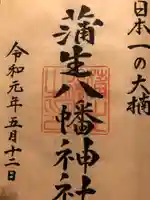 日本一の大楠
蒲生八幡神社
令和元年五月十二日